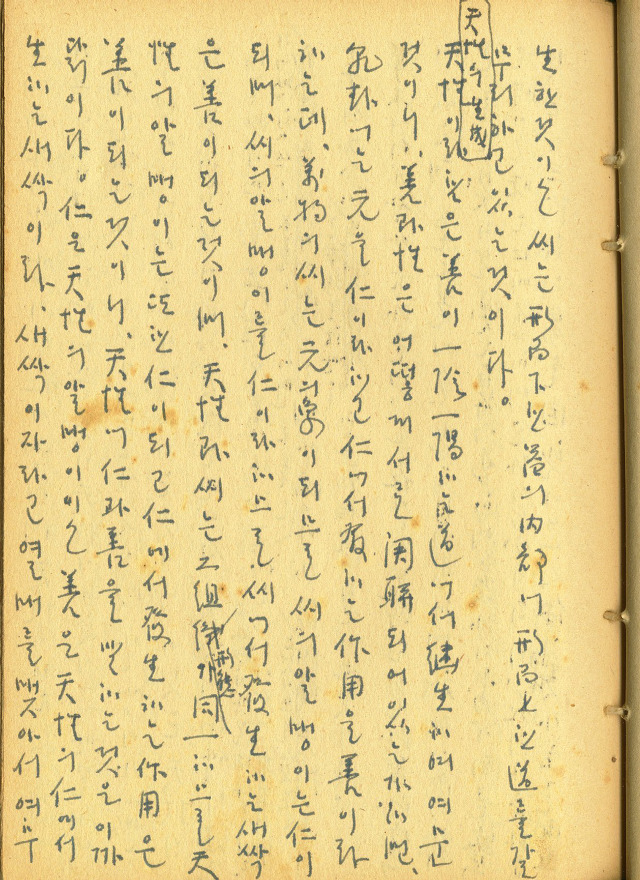 生한 것이오 씨는 形而下인 器의 內部에 形而上인 道를 갈
무리하고 있는 것이다。
天性의 生成
天性이라 함은 善이 一陰一陽하는 道에서 繼生하여 여문
것이니, 善과 性은 어떻게 서로 關聯되어 있는가 하면,
乾卦에는 元을 仁이라 하고 仁에서 發하는 作用을 善이라
하는데, 萬物의 씨는 元의 象이 되므로 씨의 알맹이는 仁이
되며, 씨의 알맹이를 仁이라 하므로 씨에서 發生하는 새싹
은 善이 되는 것이며, 天性과 씨는 그 組織 形態가 同一하므로 天
性의 알맹이는 또한 仁이 되고 仁에서 發生하는 作用은
善이 되는 것이니, 天性에 仁과 善을 말하는 것은 이 까
닭이다。仁은 天性의 알맹이이오 善은 天性의 仁에서
生하는 새싹이라, 새싹이 자라고 열매를 맺아서 여무